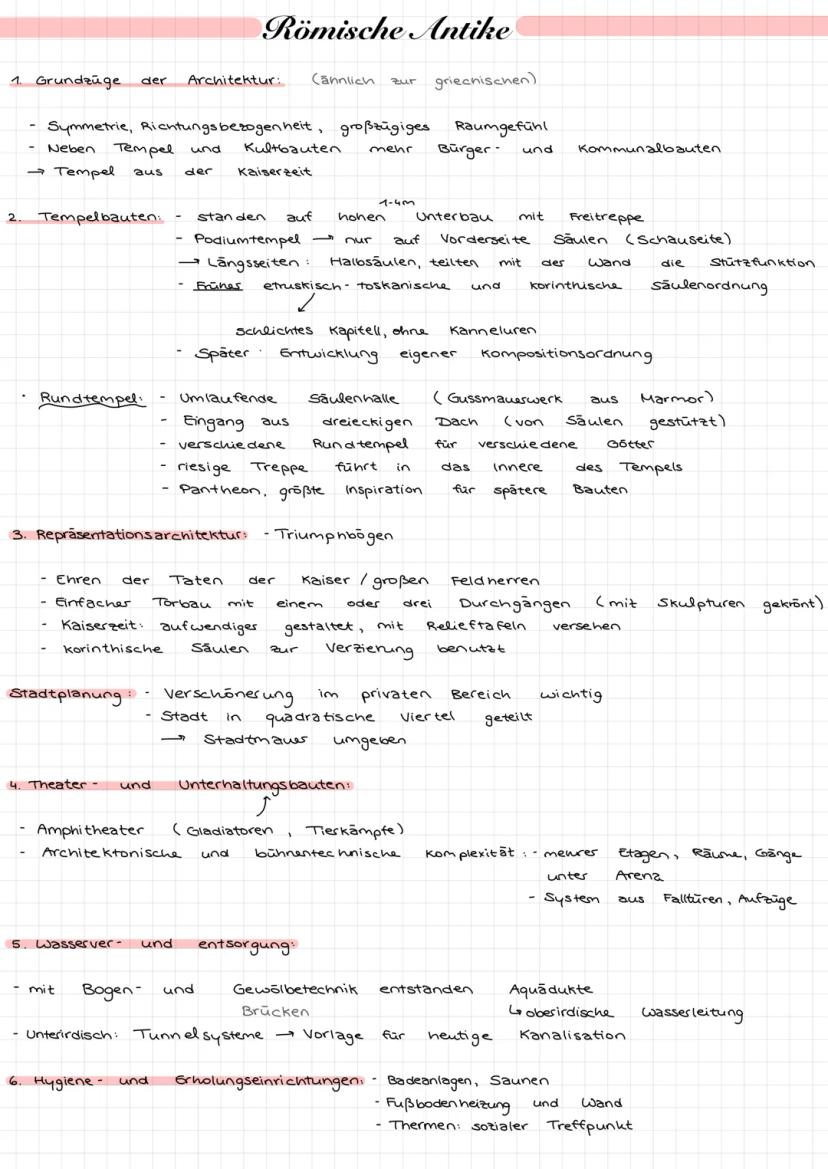 Römische Antike
1. Grundzüge der Architektur: (ähnlich zur griechischen)
- Symmetrie, Richtungsbezogenheit, großzügiges Raumgefühl
- Neben Tempel und Kultbauten mehr Bürger- und Kommunalbauten
→ Tempel aus der Kaiserzeit
1-4m
2. Tempelbauten: - standen auf hohen Unterbau mit Freitreppe
- Podiumtempel → nur auf Vorderseite Säulen (Schauseite)
→ Längsseiten: Halbsäulen, teilten mit der Wand die Stützfunktion
- Früher etruskisch-toskanische und korinthische Säulenordnung
schlichtes Kapitell, ohne Kanneluren
- Später: Entwicklung eigener Kompositionsordnung
· Rundtempel: - Umlaufende Säulenhalle (Gussmauerwerk aus Marmor)
- Eingang aus dreieckigen Dach (von Säulen gestützt)
- verschiedene Rundtempel für verschiedene Götter
- riesige Treppe führt in das Innere des Tempels
- Pantheon, größte Inspiration für spätere Bauten
3. Repräsentationsarchitektur: - Triumphbögen
- Ehren der Taten der Kaiser / großen Feldherren
- Einfacher Torbau mit einem oder drei Durchgängen (mit Skulpturen gekrönt)
- Kaiserzeit: aufwendiges gestaltet, mit Relieftafeln versehen
- korinthische Säulen zur Verzierung benutzt
Stadtplanung: - Verschönerung im privaten Bereich wichtig
- Stadt in quadratische Viertel geteilt
→ Stadtmauer umgeben
4. Theater- und Unterhaltungsbauten:
- Amphitheater (Gladiatoren, Tierkämpfe)
- Architektonische und bühnentechnische Komplexität: - mehrer Etagen, Räume, Gänge
unter Arena
- System aus Falltüren, Aufzüge
5. Wasserver- und entsorgung:
- mit Bogen- und Gewölbetechnik entstanden Aquädukte
Brücken ↳ oberirdische Wasserleitung
- Unterirdisch: Tunnelsysteme → Vorlage für heutige Kanalisation
6. Hygiene- und Erholungseinrichtungen: - Badeanlagen, Saunen
- Fußbodenheizung und Wand
- Thermen: sozialer Treffpunkt